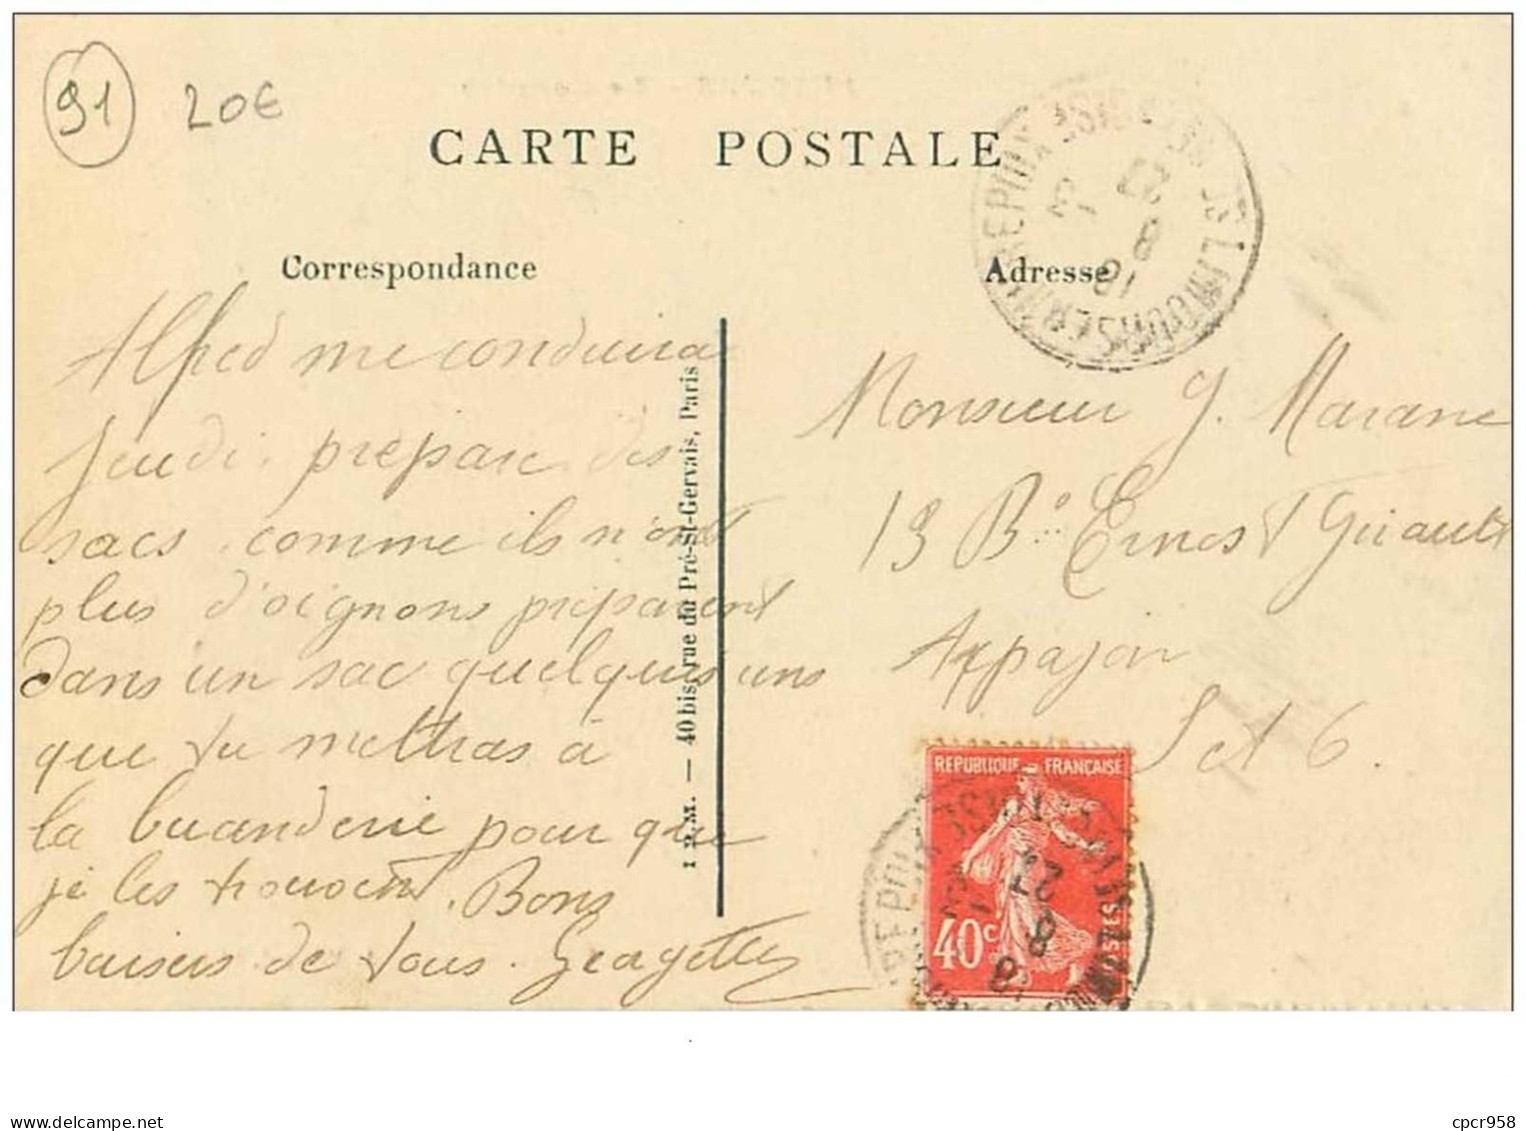 91 20€
CARTE POSTALE
Correspondance
Adresse
Alfred me conduira
Jeudi. prépare des
sacs. comme ils n'ont
plus d'oignons préparent
dans un sac quelques uns
que tu mettras à
la buanderie pour que
je les trouvent. Bons
baisers de tous. Georgette
1 P.M. — 40 bis, rue du Pré-St-Gervais, Paris
Monsieur G. Marane
13 Bd Ernest Girault
Arpajon
S et O.
REPUBLIQUE FRANÇAISE
40c
POSTES
cpcr958